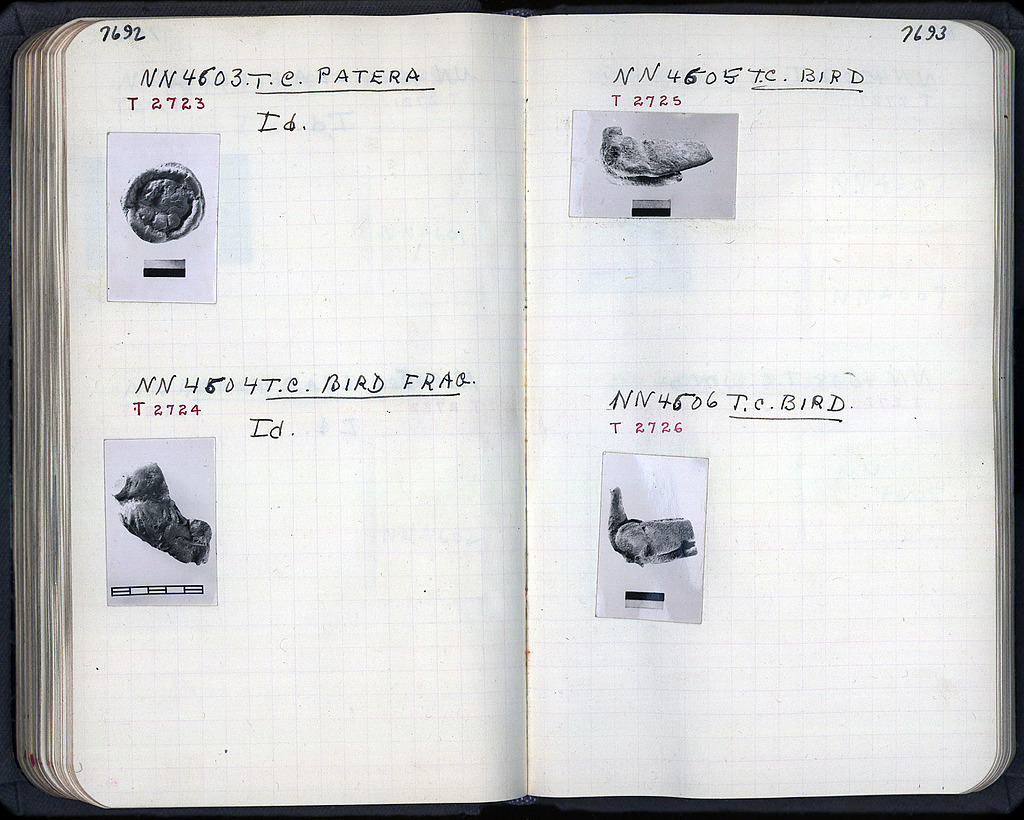 7692
NN4603. T.C. PATERA
T 2723
Id.
NN4604 T.C. BIRD FRAG.
T 2724
Id.
7693
NN4605 T.C. BIRD
T 2725
NN4606 T.C. BIRD.
T 2726